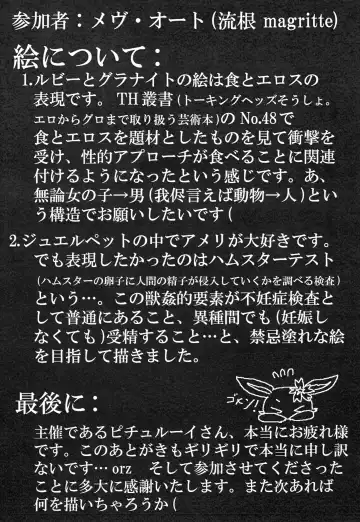 参加者：メヴ・オート(流根 magritte)
絵について：
1.ルビーとグラナイトの絵は食とエロスの
表現です。 TH叢書(トーキングヘッズそうしょ。
エロからグロまで取り扱う芸術本)の No.48で
食とエロスを題材としたものを見て衝撃を
受け、性的アプローチが食べることに関連
付けるようになったという感じです。あ、
無論女の子→男(我侭言えば動物→人)とい
う構造でお願いしたいです(
2.ジュエルペットの中でアメリが大好きです。
でも表現したかったのはハムスターテスト
(ハムスターの卵子に人間の精子が侵入していくかを調べる検査)
という…。この獣姦的要素が不妊症検査と
して普通にあること、異種間でも(妊娠し
なくても)受精すること…と、禁忌塗れな絵
を目指して描きました。
ゴメン！
最後に：
主催であるピチュルーイさん、本当にお疲れ様
です。このあとがきもギリギリで本当に申し訳
ないです… orz　そして参加させてくださった
ことに多大に感謝いたします。また次あれば
何を描いちゃろうか(